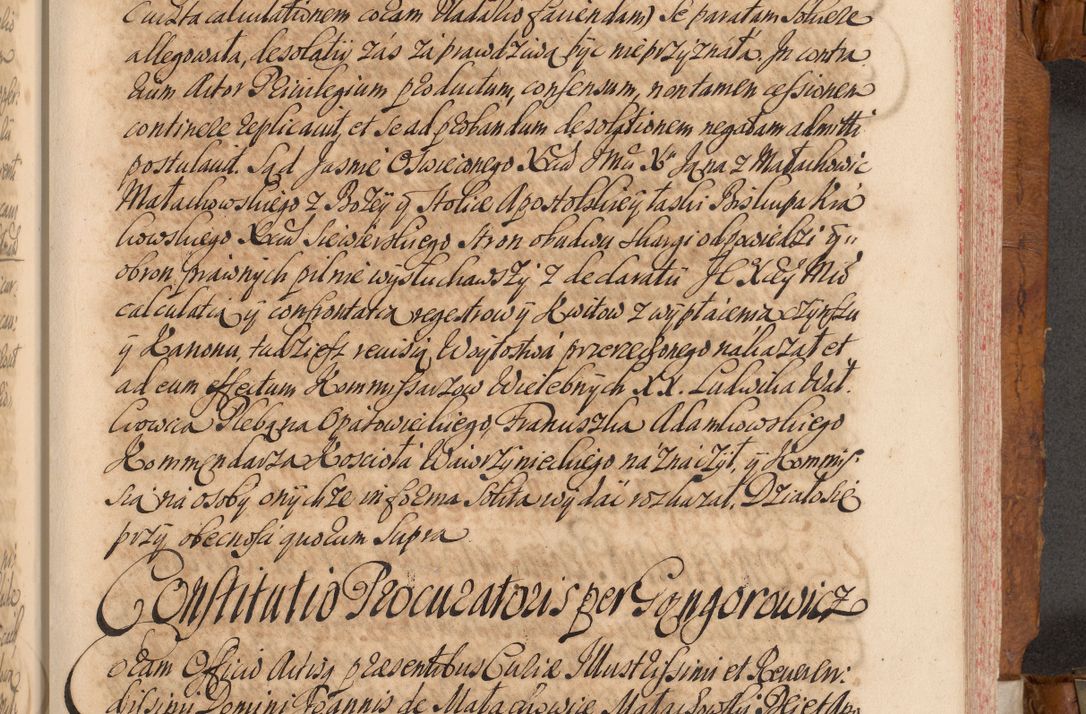 Cuista calculationem coram Pladalio faciendam) Se paratam Solvere
allegowała, desolatij zás zá prawdźiwą być nieprzyznáłá. In contra
rium Actor Privilegium productum, consensum, non tamen cessionem
continere replicavit, et Se ad probandum desolationem negatam admitti
postulavit. Sąd Jasnie Oswieconego Xcia Jmci Xa Jana z Małachowic
Małachowskiego z Bożey y Stolice Apostolskiey łaski Biskupa Kra
kowskiego Xcia Siewierskiego Stron obudwu skargi odpowiedzi y
obron prawnych pilnie wysłuchawszy z declaratij JEXcey Mci
calculatią y confrontatią regestrow y Kwitow z wypłácenia czynszu
y Kanonu, tudziesz revisią Woytostwá przerzeczonego nákazał et
ad eum effectum Kommissarzow Wielebnych XX. Ludwika Wał
kowica Plebana Opatowieckiego, Franciszka Adamkowskiego
Kommendarza Kosciołá Wawrzynieckiego náznáczył, y Kommis
sią ná osoby onychże in forma Solita wydáć rozkazał. Działo się
przy obecnosci quorum Supra
Constitutio Procuratoris per Gongorowicz
Coram Officio Actisq praesentibus Curiae Illustrissimi et Reveren
dissimi Domini Joannis de Małachowice Małachowski Dei et Ap